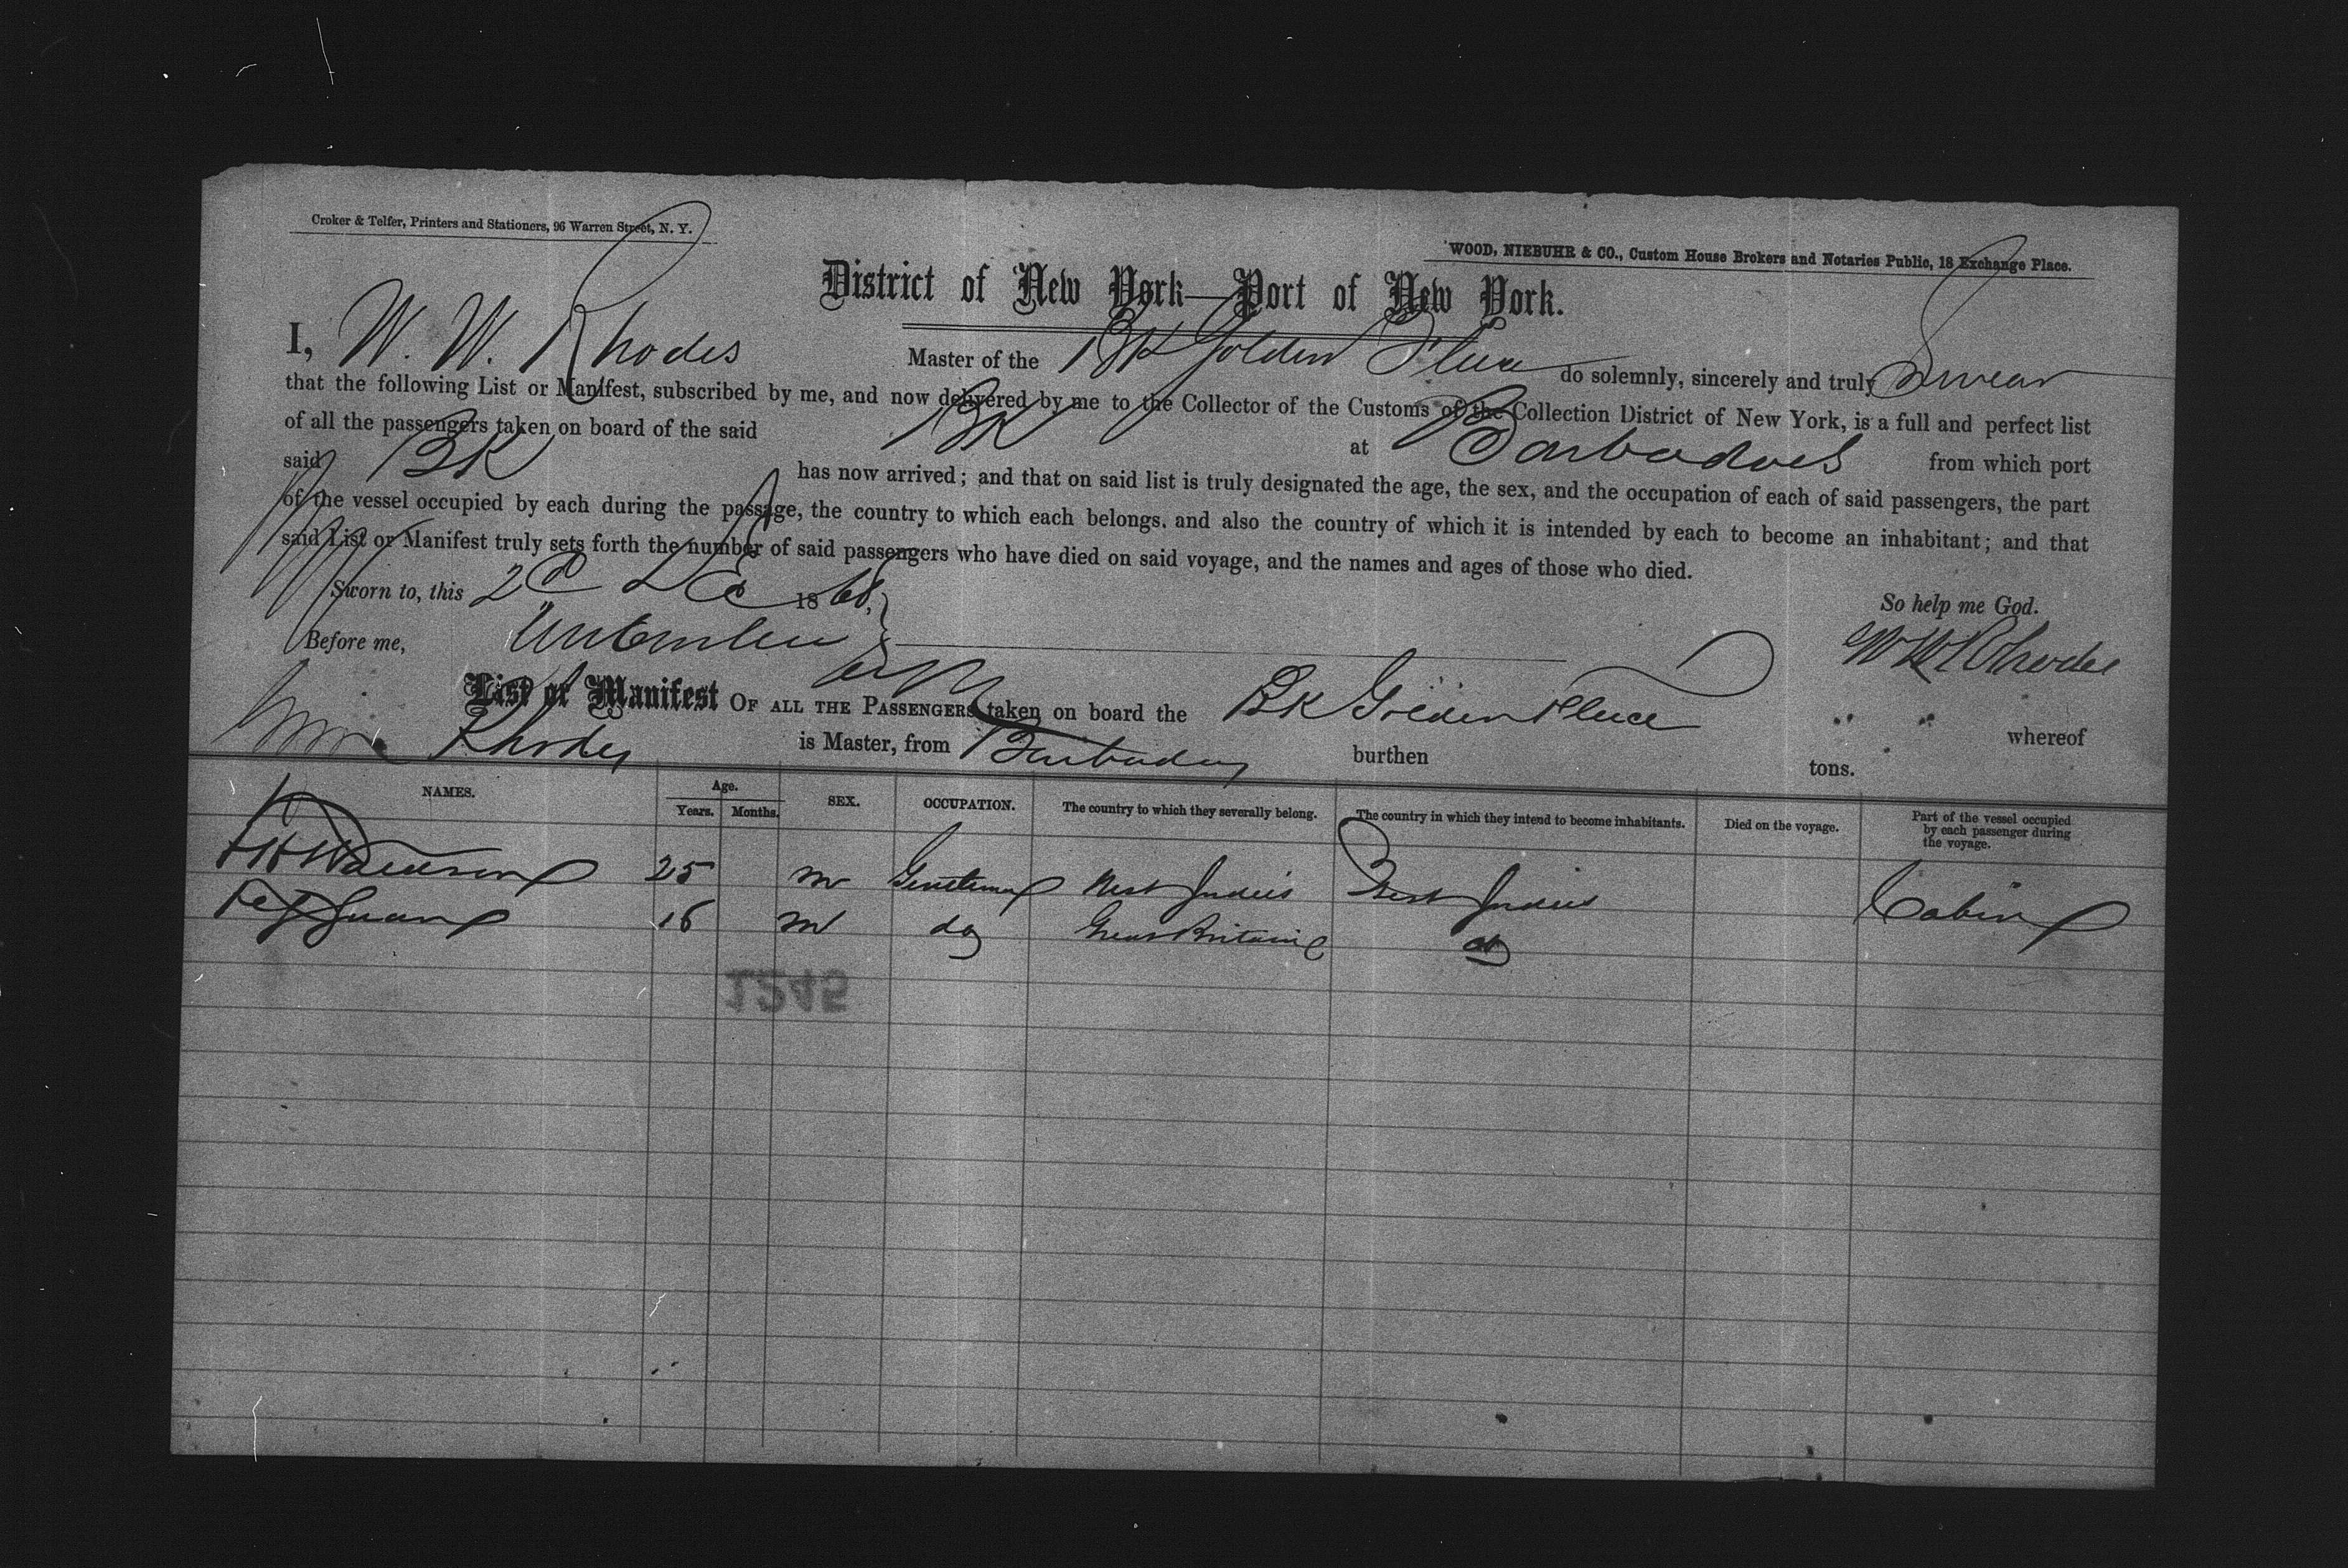 Croker & Telfer, Printers and Stationers, 96 Warren Street, N. Y.
WOOD, NIEBUHR & CO., Custom House Brokers and Notaries Public, 18 Exchange Place.
District of New York—Port of New York.
I, W. W. Rhodes Master of the BK Golden Fleece do solemnly, sincerely and truly Swear
that the following List or Manifest, subscribed by me, and now delivered by me to the Collector of the Customs of the Collection District of New York, is a full and perfect list
of all the passengers taken on board of the said BK at Barbadoes from which port
said BK has now arrived; and that on said list is truly designated the age, the sex, and the occupation of each of said passengers, the part
of the vessel occupied by each during the passage, the country to which each belongs. and also the country of which it is intended by each to become an inhabitant; and that
said List or Manifest truly sets forth the number of said passengers who have died on said voyage, and the names and ages of those who died.
Sworn to, this 2 1868, So help me God.
Before me, W W Rhodes
List or Manifest OF ALL THE PASSENGERS taken on board the BK Golden Fleece " " whereof
Rhodes is Master, from Barbadoes burthen tons.
NAMES. Age. Years. Months. SEX. OCCUPATION. The country to which they severally belong. The country in which they intend to become inhabitants. Died on the voyage. Part of the vessel occupied by each passenger during the voyage.
25 M Gentleman West Indies West Indies Cabin
16 M do Great Britain do
1245